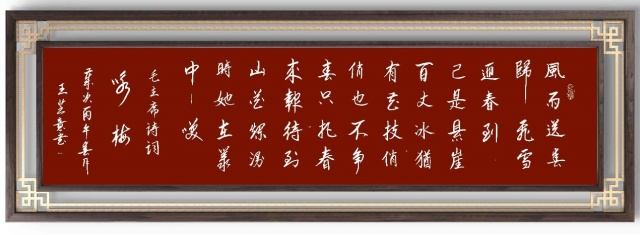 風雨送春
歸飛雪
迎春到
已是悬崖
百丈冰猶
有花枝俏
俏也不争
春只把春
來報待到
山花烂漫
時她在叢
中笑
毛主席詩詞
咏梅
歲次丙午春月
王